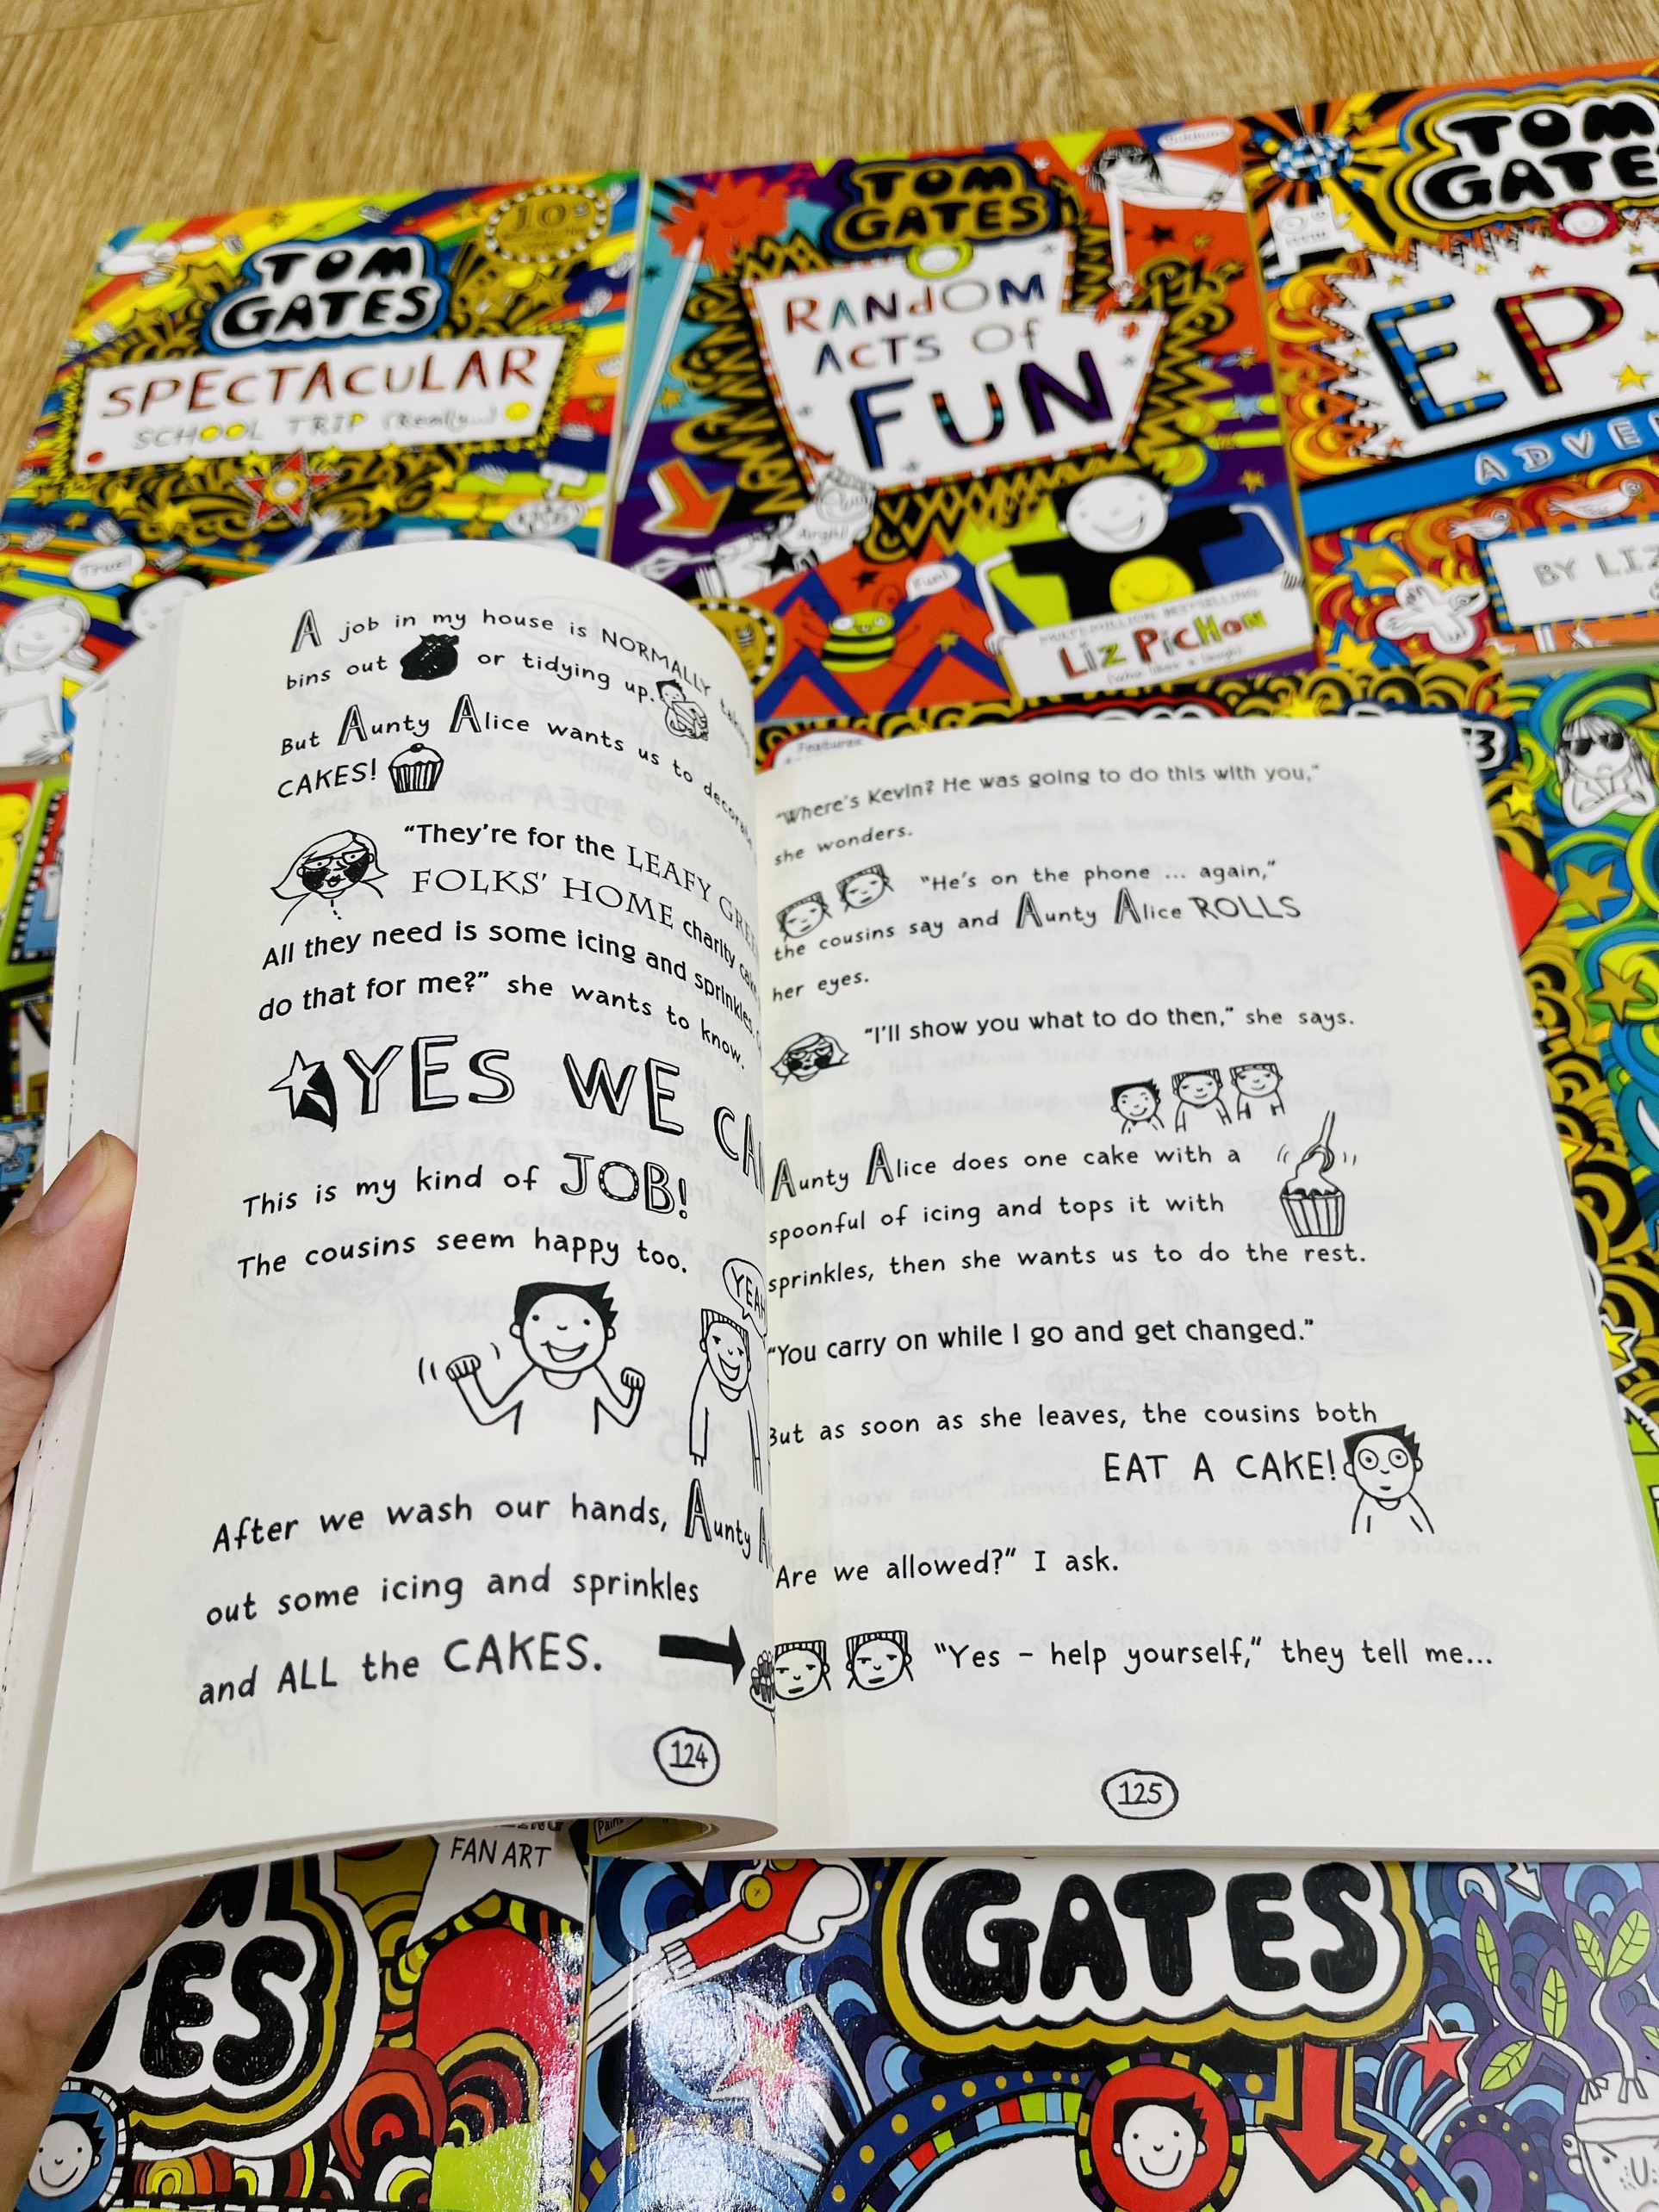 TOM
GATES
SPECTACULAR
SCHOOL TRIP (Really...)
TOM
GATES
RANdOM
ACTS Of
FUN
Fun!
LIZ PicHoN
TOM
BY LIZ
A job in my house is NORMALLY
bins out or tidying up.
But Aunty Alice wants us to
CAKES!
"They're for the LEAFY
FOLKS' HOME charity
All they need is some icing and sprinkles.
do that for me?" she wants to know.
YES WE
This is my kind of JOB!
The cousins seem happy too.
After we wash our hands, Aunty
out some icing and sprinkles
and ALL the CAKES.
124
"Where's Kevin? He was going to do this with you,"
she wonders.
"He's on the phone ... again,"
the cousins say and Aunty Alice ROLLS
her eyes.
"I'll show you what to do then," she says.
Aunty Alice does one cake with a
spoonful of icing and tops it with
sprinkles, then she wants us to do the rest.
"You carry on while I go and get changed."
But as soon as she leaves, the cousins both
EAT A CAKE!
Are we allowed?" I ask.
"Yes – help yourself," they tell me...
125
FAN ART
GATES